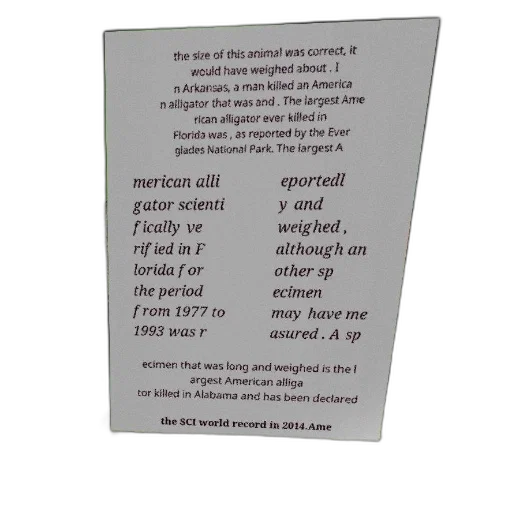 the size of this animal was correct, it
would have weighed about . I
n Arkansas, a man killed an America
n alligator that was and . The largest Ame
rican alligator ever killed in
Florida was , as reported by the Ever
glades National Park. The largest A
merican alli
gator scienti
fically ve
rified in F
lorida for
the period
from 1977 to
1993 was r
eportedl
y and
weighed ,
although an
other sp
ecimen
may have me
asured . A sp
ecimen that was long and weighed is the l
argest American alliga
tor killed in Alabama and has been declared
the SCI world record in 2014.Ame